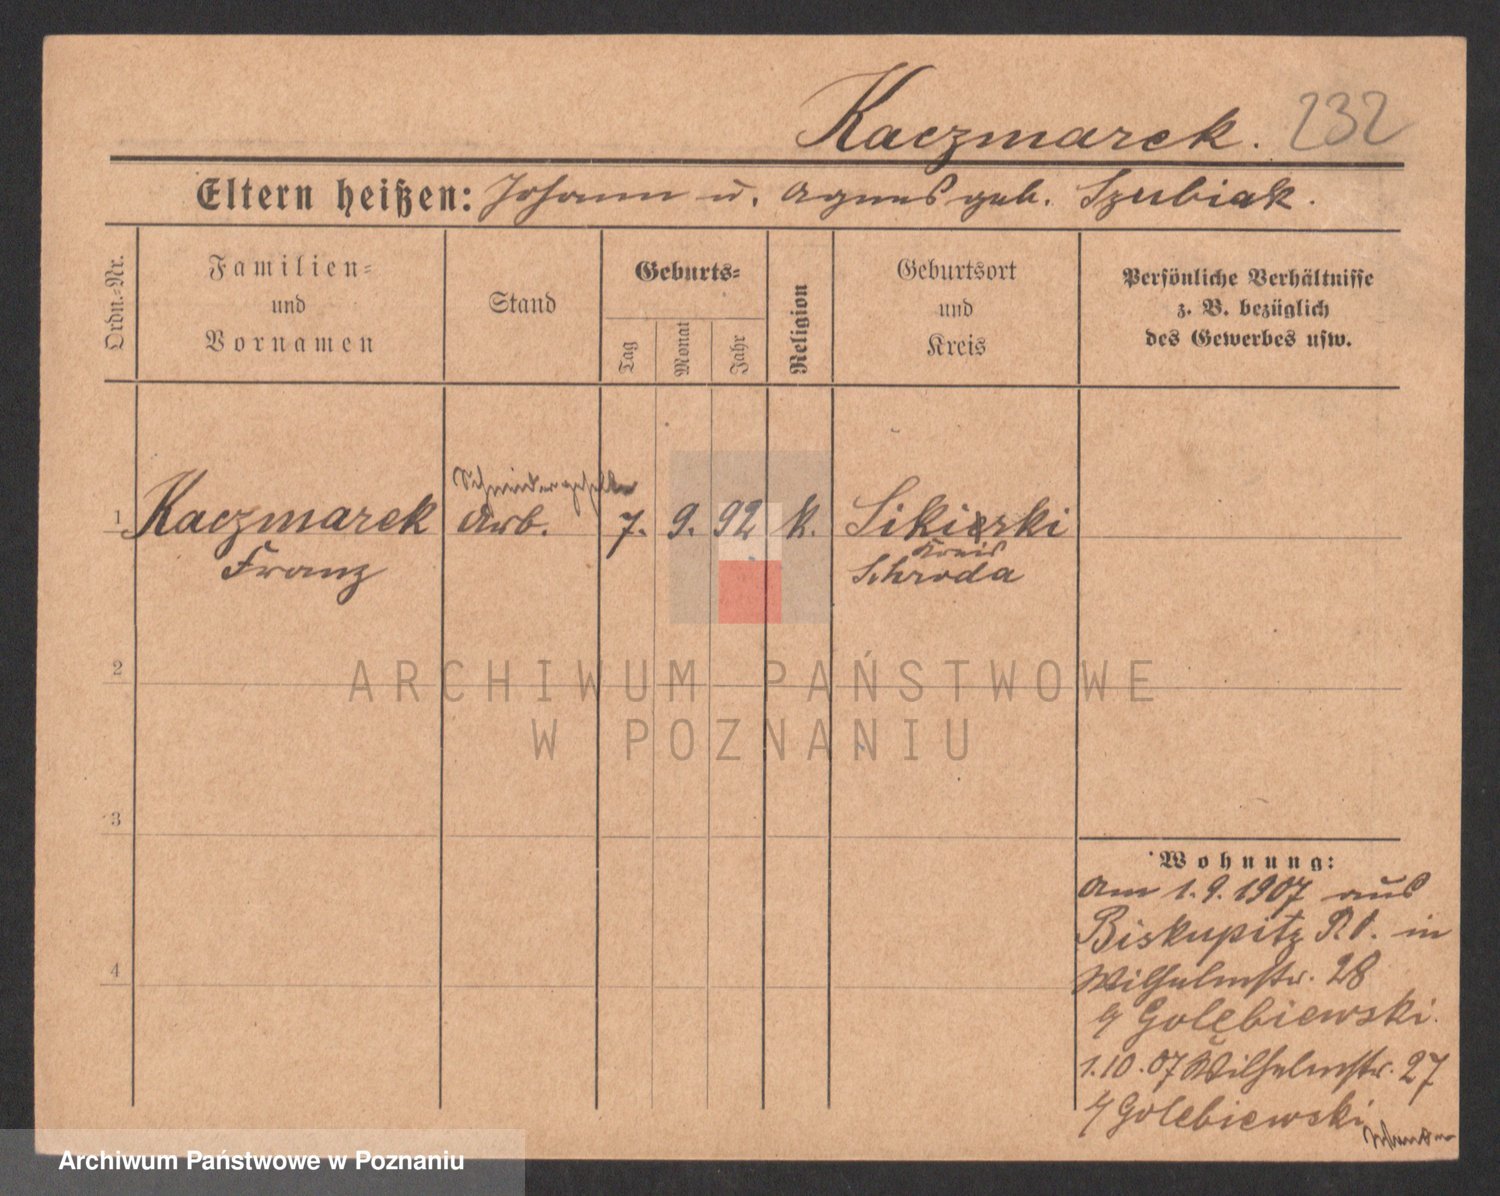 Kaczmarek. 232
Eltern heißen: Johann u. Agnes geb. Szubiak.
Ordn.-Nr.
Familien-
und
Vornamen
Stand
Geburts-
Tag
Monat
Jahr
Religion
Geburtsort
und
Kreis
Persönliche Verhältnisse
z. B. bezüglich
des Gewerbes usw.
Schneidergeselle
1 Kaczmarek Arb. 7. 9. 92 k. Sikierski
Kreis
Franz Schroda
2
ARCHIWUM PAŃSTWOWE
W POZNANIU
3
Wohnung:
Am 1.9.1907 aus
Biskupitz in
4
Wilhelmstr. 28
Golębiewski.
1.10.07 Wilhelmstr. 27
Golębiewski
Archiwum Państwowe w Poznaniu